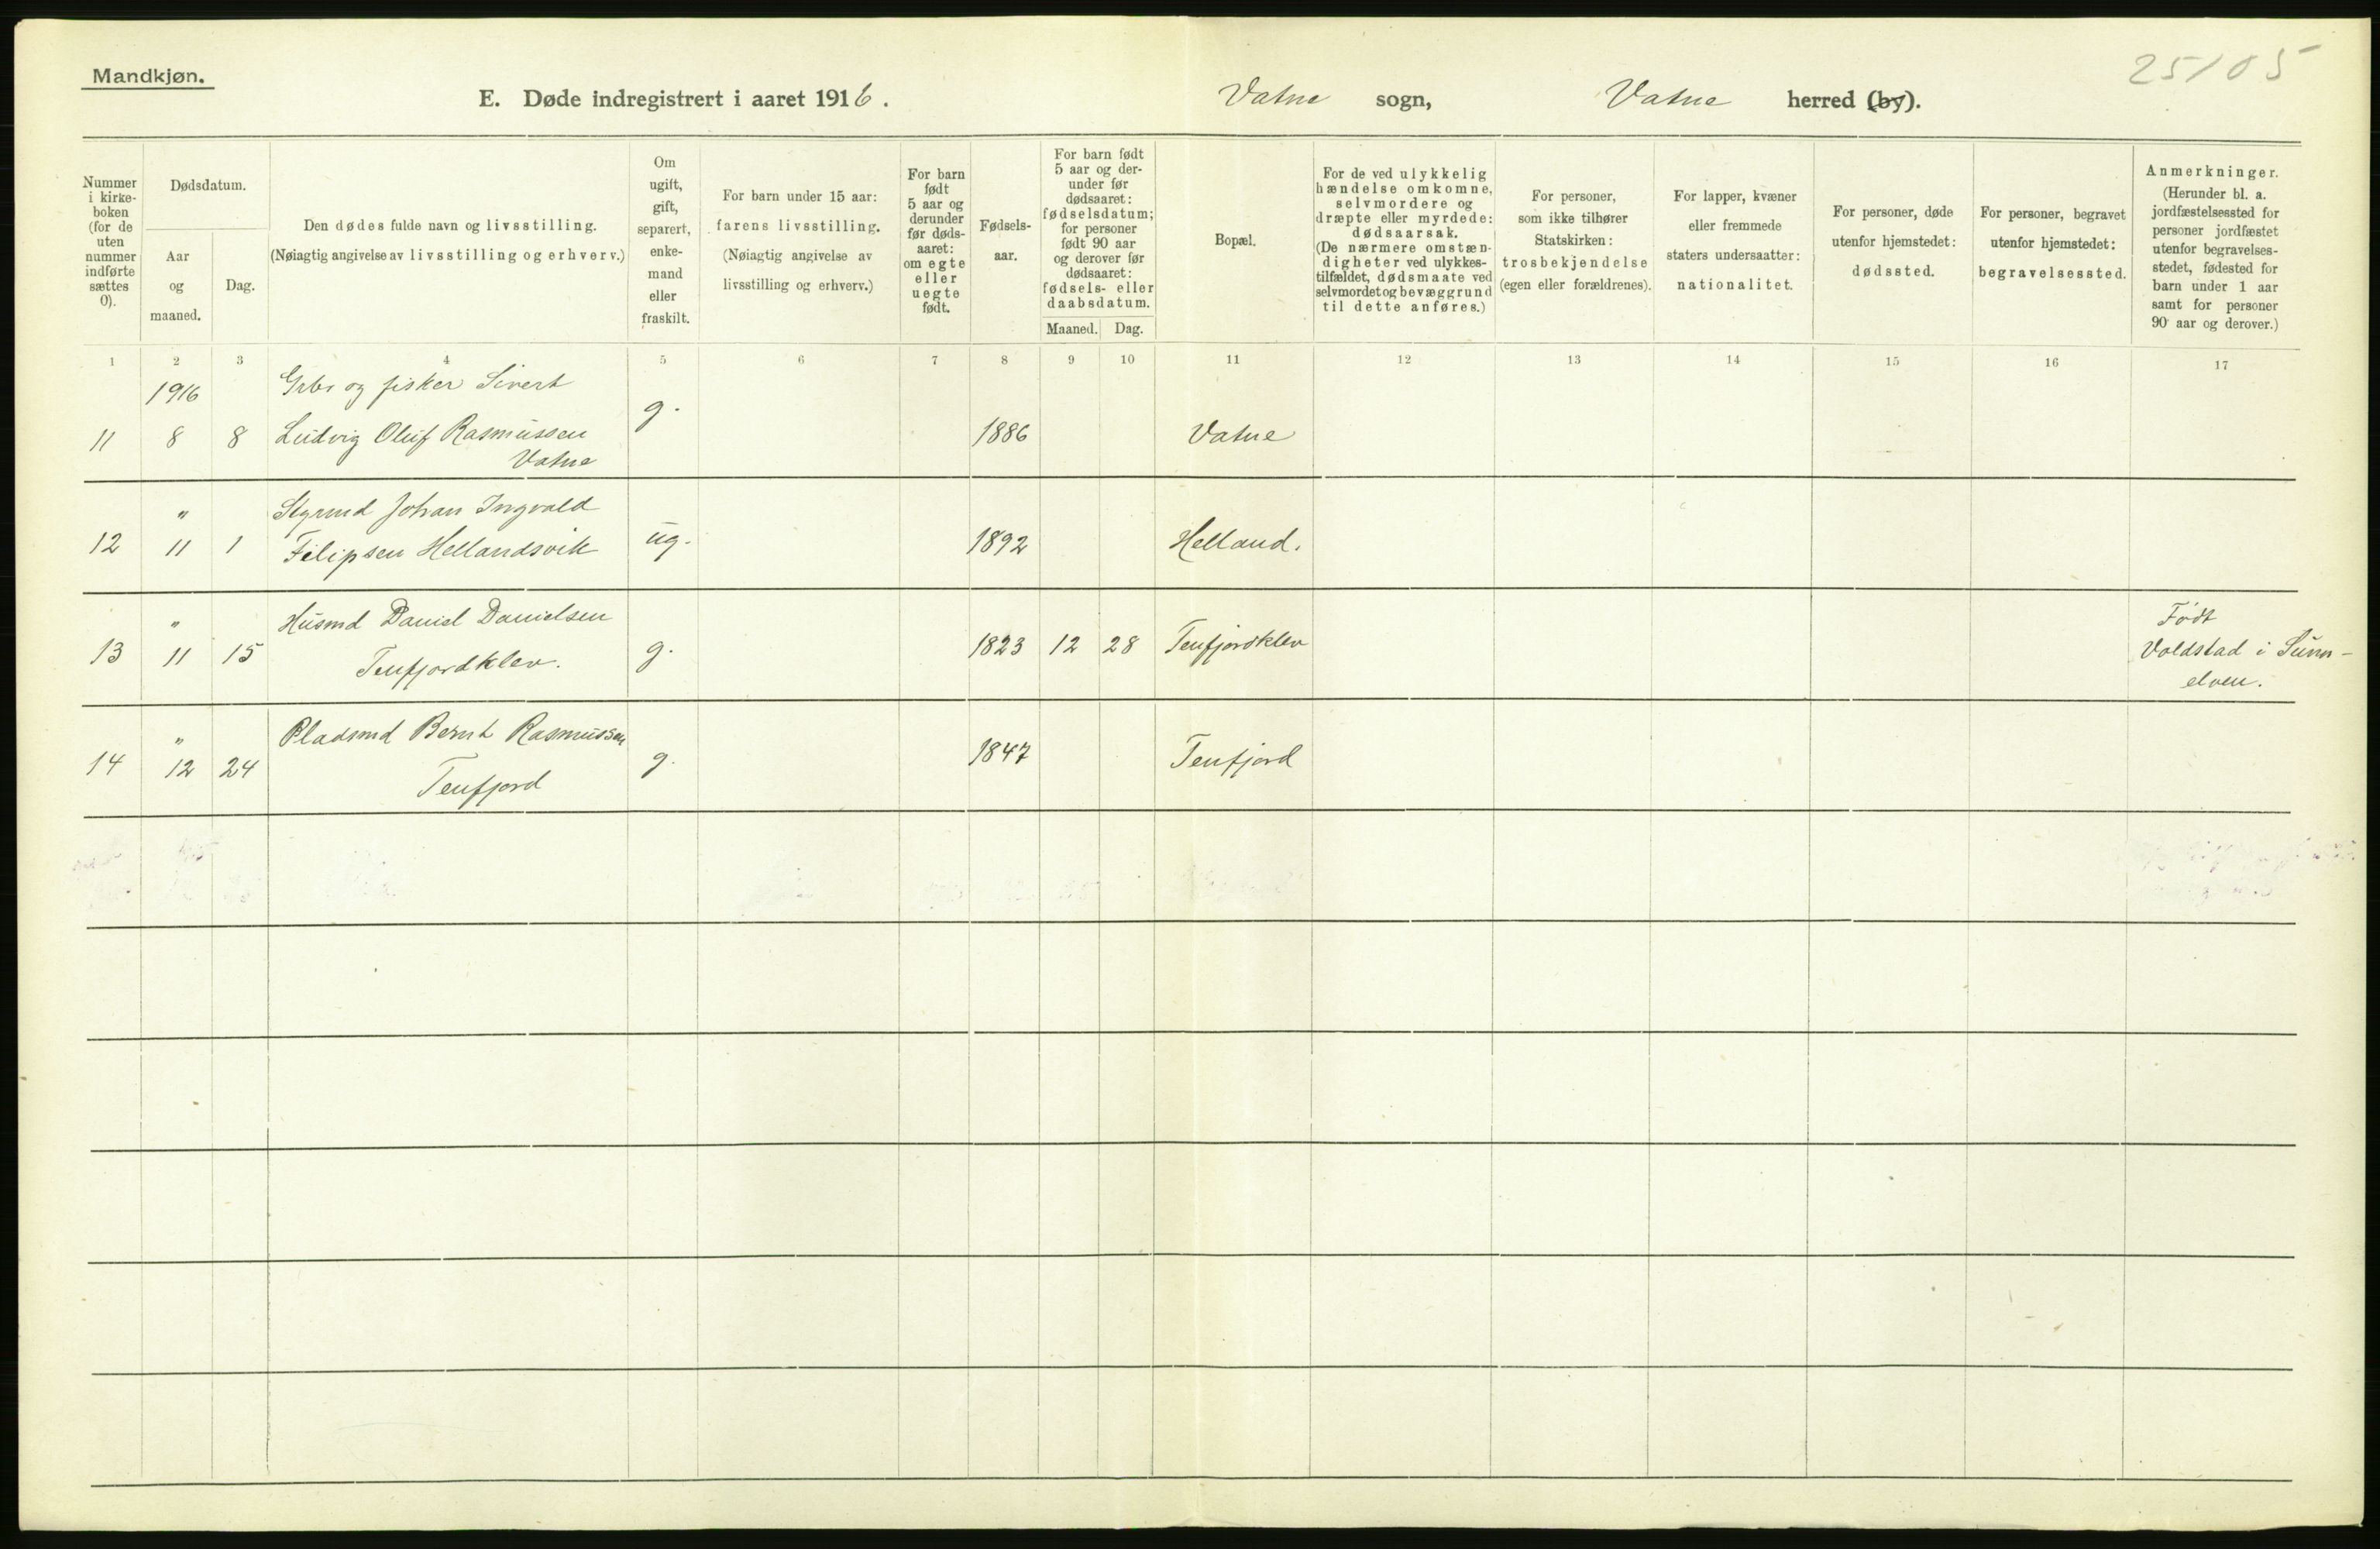 Mandkjøn.
25105
E. Døde indregistrert i aaret 1916.
Vatne sogn, Vatne herred (by).
Nummer
i kirke-
boken
(for de
uten
nummer
indførte
sættes
0).
Dødsdatum.
Aar
og
maaned.
Dag.
Den dødes fulde navn og livsstilling.
(Nøiagtig angivelse av livsstilling og erhverv.)
Om
ugift,
gift,
separert,
enke-
mand
eller
fraskilt.
For barn under 15 aar:
farens livsstilling.
(Nøiagtig angivelse av
livsstilling og erhverv.)
For barn
født
5 aar og
derunder
før døds-
aaret:
om egte
eller
uegte
født.
Fødsels-
aar.
For barn født
5 aar og der-
under før
dødsaaret:
fødselsdatum;
for personer
født 90 aar
og derover før
dødsaaret:
fødsels- eller
daabsdatum.
Maaned. Dag.
Bopæl.
For de ved ulykkelig
hændelse omkomne,
selvmordere og
dræpte eller myrdede:
dødsaarsak.
(De nærmere omstæn-
digheter ved ulykkes-
tilfældet, dødsmaate ved
selvmordet og bevæggrund
til dette anføres.)
For personer,
som ikke tilhører
Statskirken:
trosbekjendelse
(egen eller forældrenes).
For lapper, kvæner
eller fremmede
staters undersaatter:
nationalitet.
For personer, døde
utenfor hjemstedet:
dødssted.
For personer, begravet
utenfor hjemstedet:
begravelsessted.
Anmerkninger.
(Herunder bl. a.
jordfæstelsessted for
personer jordfæstet
utenfor begravelses-
stedet, fødested for
barn under 1 aar
samt for personer
90 aar og derover.)
1 2 3 4 5 6 7 8 9 10 11 12 13 14 15 16 17
1916 Grbr og fisker Sivert
11 8 8 Ludvig Oluf Rasmussen g. 1886 Vatne
Vatne
" Styrmd Johan Ingvald
12 11 1 Filipsen Hellandsvik ug. 1892 Helland.
" Husmd Daniel Danielsen Født
13 11 15 Tenfjordklev. g. 1823 12 28 Tenfjordklev Voldstad i Sunn-
elven.
" Pladsmd Bernt Rasmussen
14 12 24 Tenfjord g. 1847 Tenfjord